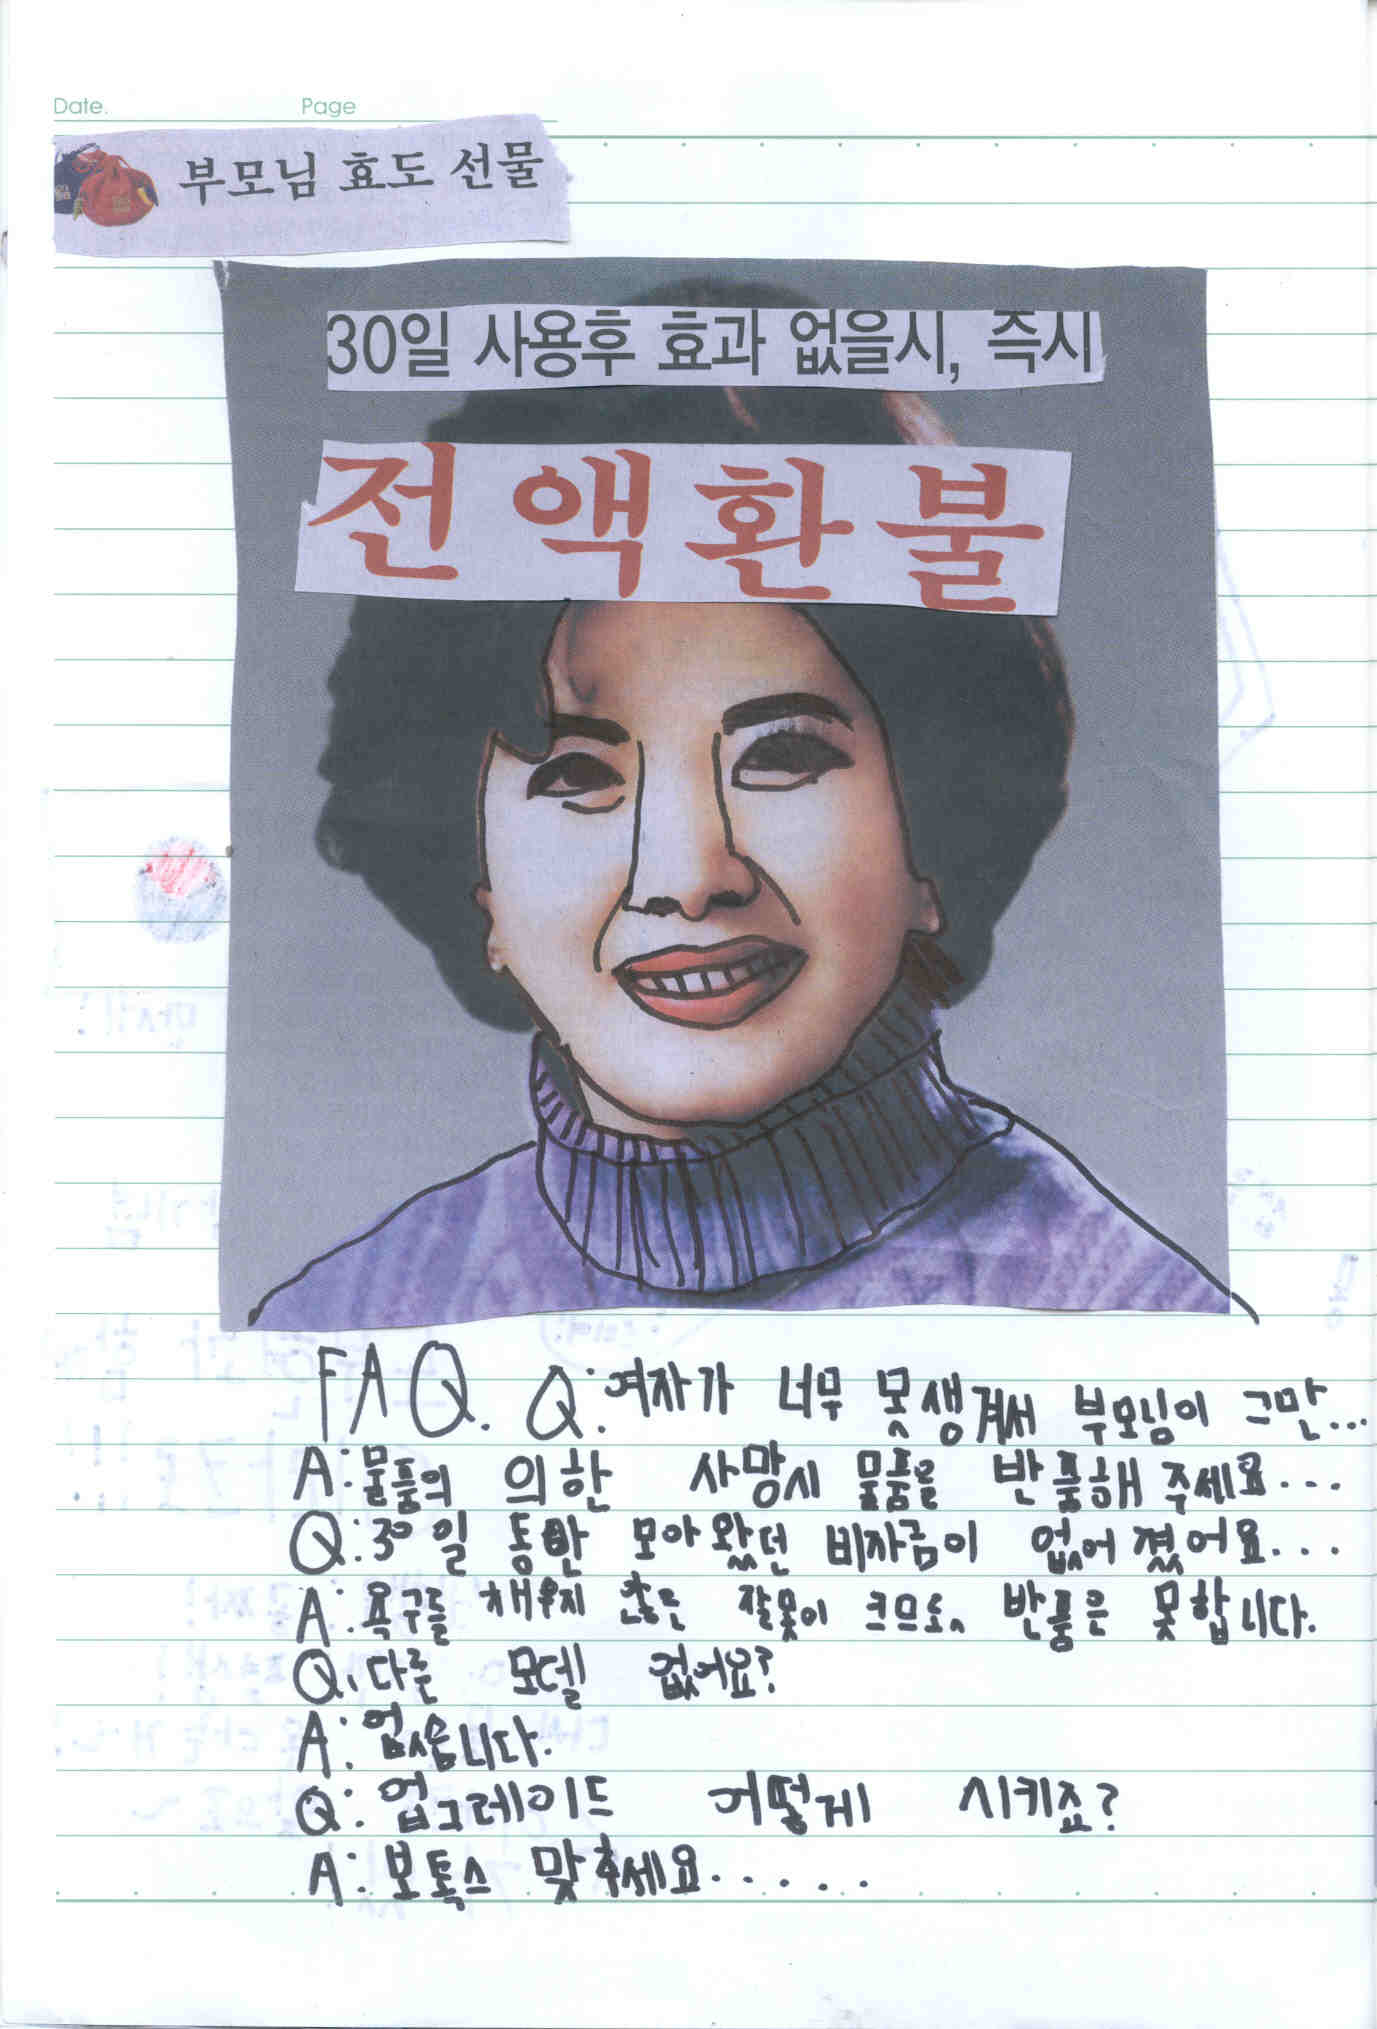 Date. Page
부모님 효도 선물
30일 사용후 효과 없을시, 즉시
전액환불
FAQ. Q: 여자가 너무 못 생겨서 부모님이 그만...
A: 물품의 의한 사망시 물품을 반품해 주세요...
Q: 30일 동반 모아왔던 비자금이 없어졌어요...
A: 욕구를 채우지 않은 잘못이 크므로, 반품은 못합니다.
Q. 다른 모델 없어요?
A: 없습니다.
Q: 업그레이드 어떻게 시키죠?
A: 보톡스 맞추세요......